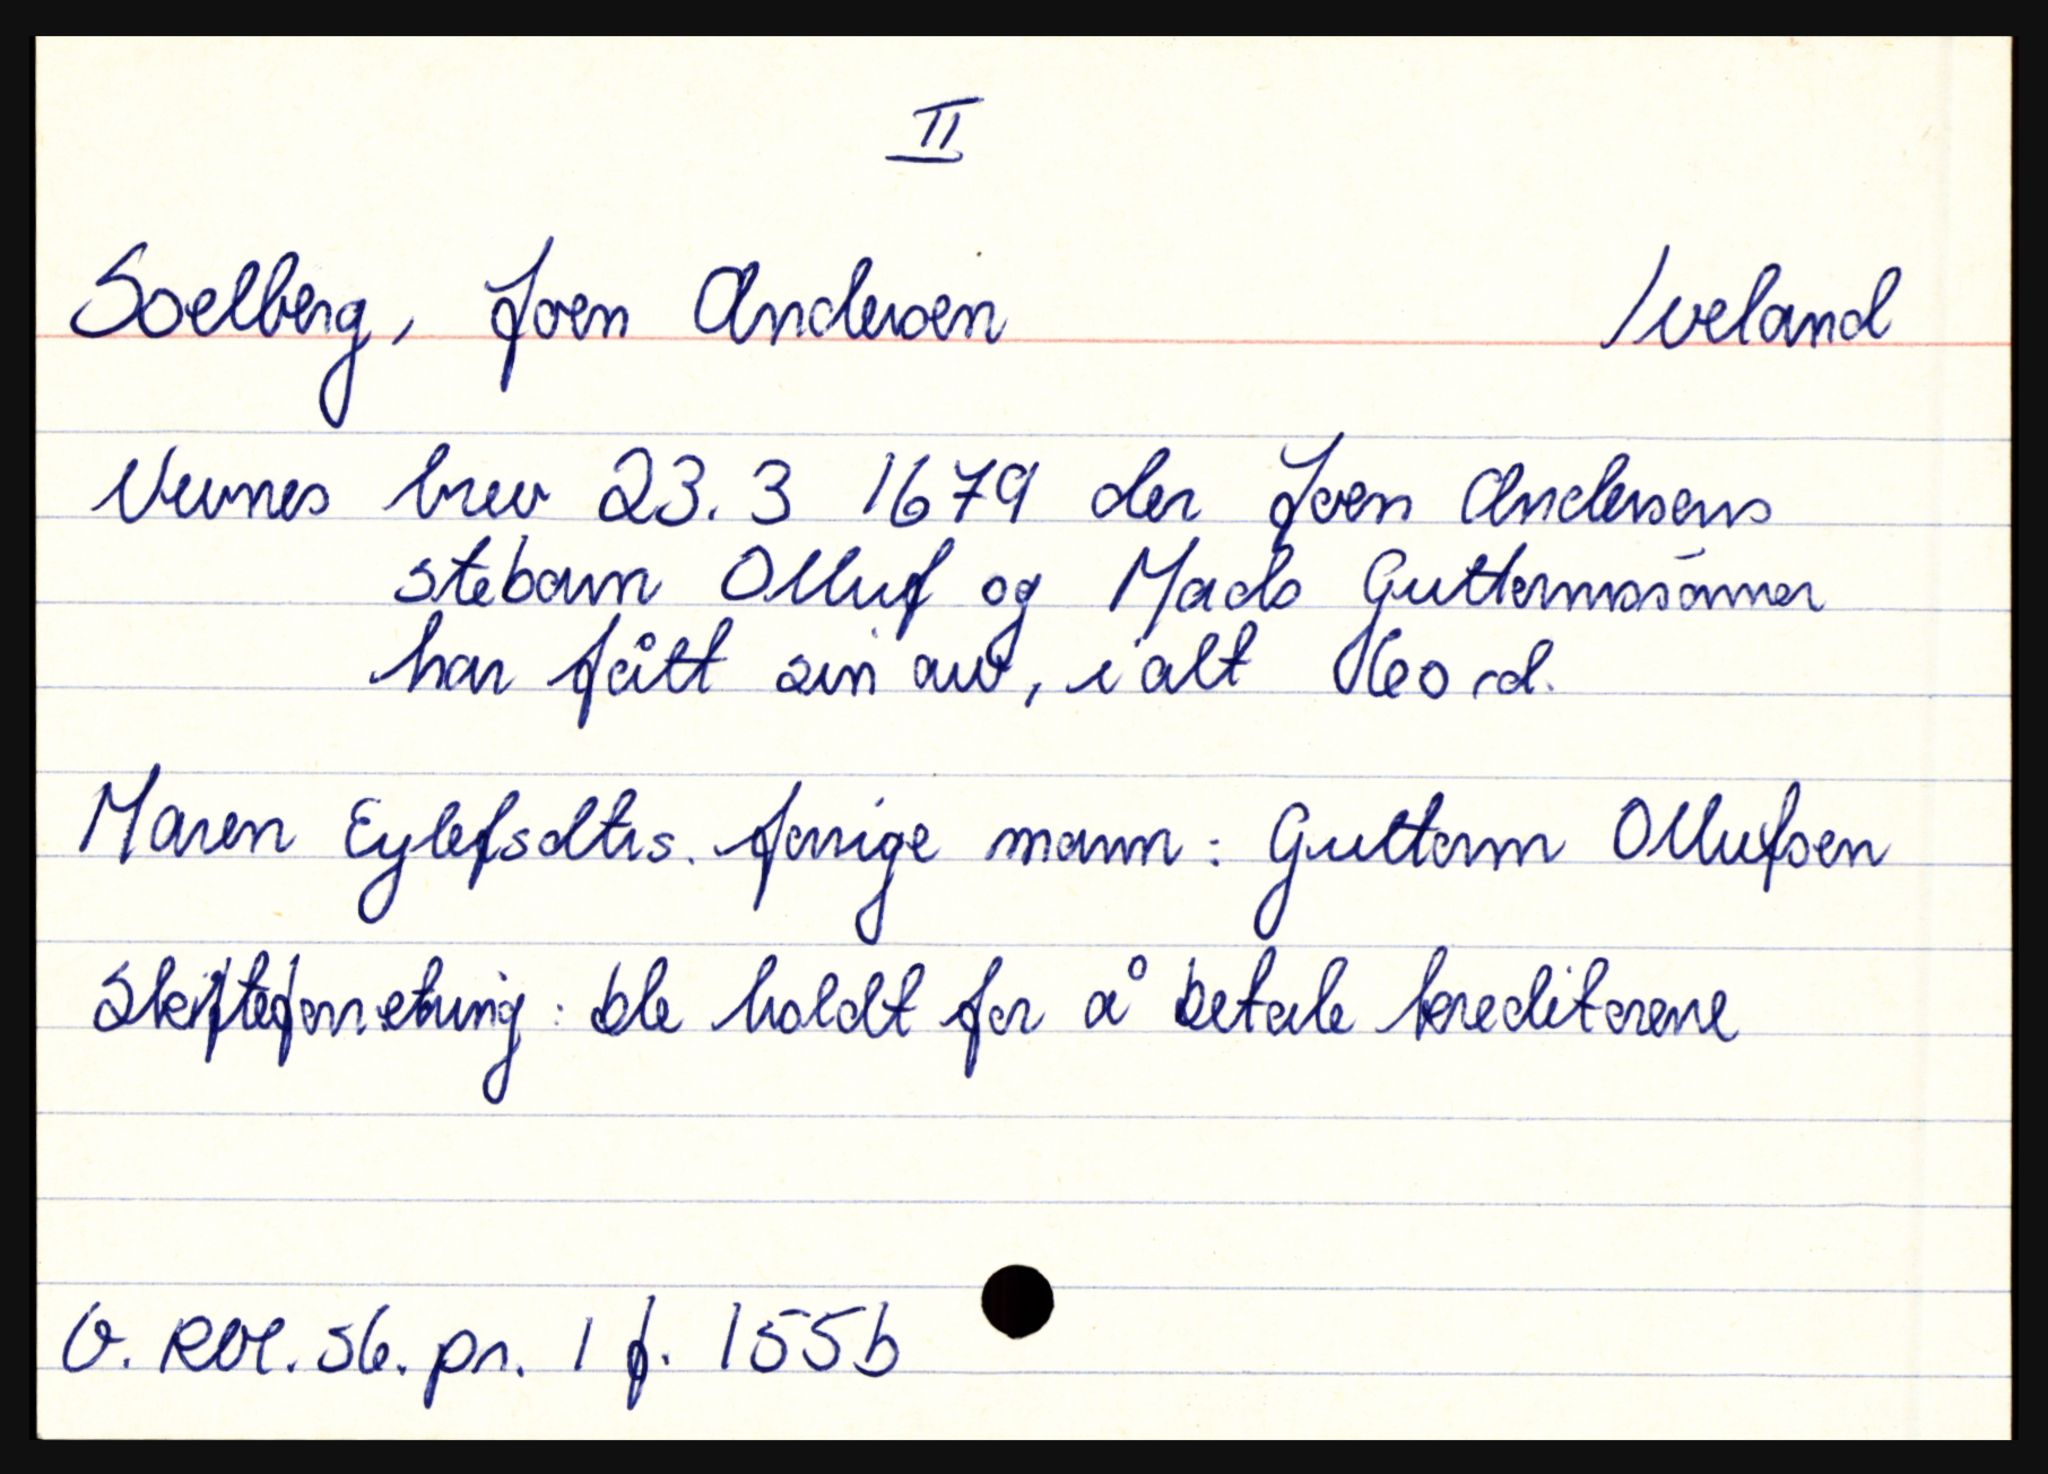 II
Soelberg, Joen Andersen Iveland
Nevnes brev 23. 3 1679 der Joen Andersens
stebarn Olluf og Mads Guttormssønner
har fått sin arv, i alt 60 rd.
Maren Eylefsdtrs. forrige mann: Guttorm Ollufsen
Skifteforretning: ble holdt for å betale kreditorene
V. Rbl. sk. pr. 1 f. 155b